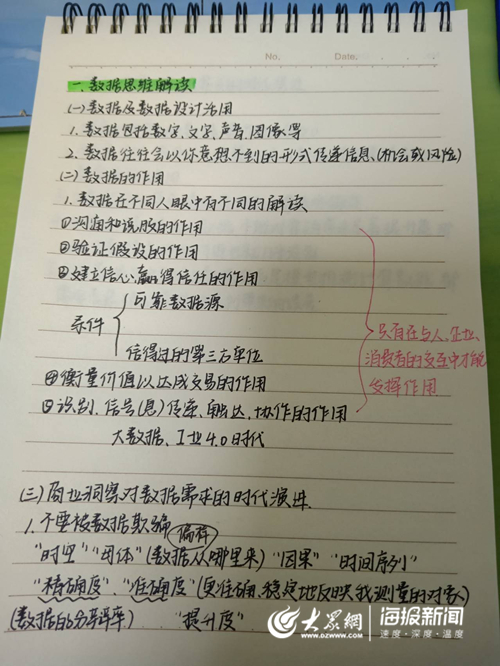 No.    Date.
一、数据思维解读
(一)数据及数据设计活用
1、数据包括数字、文字、声音、图像等
2、数据往往会以你意想不到的形式传递信息、(机会或风险)
(二)数据的作用
1、数据在不同人眼中有不同的解读
①沟通和说服的作用
②验证假设的作用
③建立信心、赢得信任的作用
条件
可靠数据源
信得过的第三方单位
④衡量价值以达成交易的作用
⑤识别、信号(息)传递、触达、协作的作用
大数据、工业4.0时代
只有在与人、企业、
消费者的交互中才能
发挥作用
(三)商业洞察对数据需求的时代演进
1、不要被数据欺骗 偏荐
"时空" "团体"(数据从哪里来) "因果" "时间序列"
"精确度"、"准确度"(更准确、稳定地反映我测量的对象)
(数据的分辨率) "提升度"
大众网 海报新闻
www.dzwww.com 速度·深度·温度